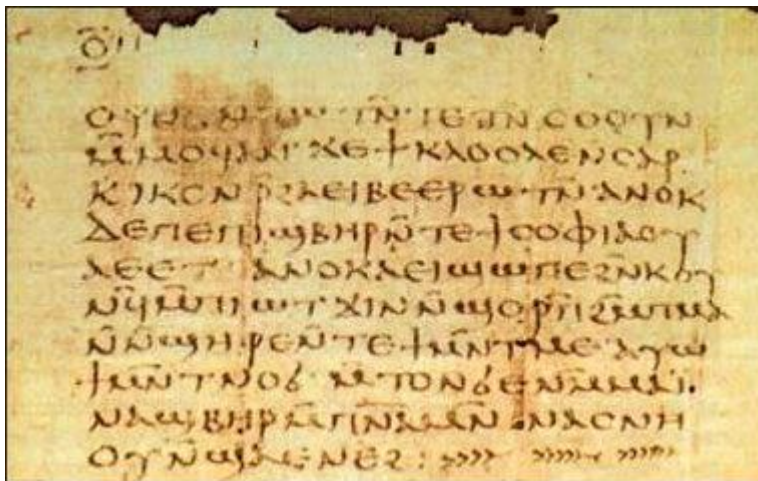 ⲟ̅
ⲥⲟⲟⲩⲛ
ⲙ̅ⲙⲟϥ ⲁⲛ ϫⲉ ϯⲕⲗⲟⲟⲗⲉ ⲛⲥⲁⲣ
ⲕⲓⲕⲟⲛ ⲣ̅ϩⲁⲉⲓⲃⲉ ⲉⲣⲱⲧⲛ̅ ⲁⲛⲟⲕ
ⲇⲉ ⲡⲉ ⲡⲓϣⲃⲏⲣ ⲛ̅ⲧⲉ ϯⲥⲟⲫⲓⲁ ⲟⲩ
ⲁⲉⲉⲧ ⲁⲛⲟⲕ ⲁⲉⲓϣⲱⲡⲉ ϩⲛ̅ ⲕⲟⲩ
ⲛϥ̅ ⲙ̅ⲡⲓⲱⲧ ϫⲓⲛ ⲛ̅ϣⲟⲣⲡ̅ ϩⲙ̅ ⲡⲙⲁ
ⲛ̅ⲛ̅ϣⲏⲣⲉ ⲛ̅ⲧⲉ ϯⲙⲛ̅ⲧⲙⲉ ⲁⲩⲱ
ϯⲙⲛ̅ⲧⲛⲟϭ ⲙ̅ⲧⲟⲛ ϭⲉ ⲛⲙ̅ⲙⲁⲓ·
ⲛⲁϣⲃⲏⲣ ⲙ̅ⲡⲛ̅ⲁ̅ ⲙⲛ̅ ⲛⲁⲥⲛⲏ
ⲟⲩ ⲛ̅ϣⲁ ⲉⲛⲉϩ: >>>> >>>>> >>>>>